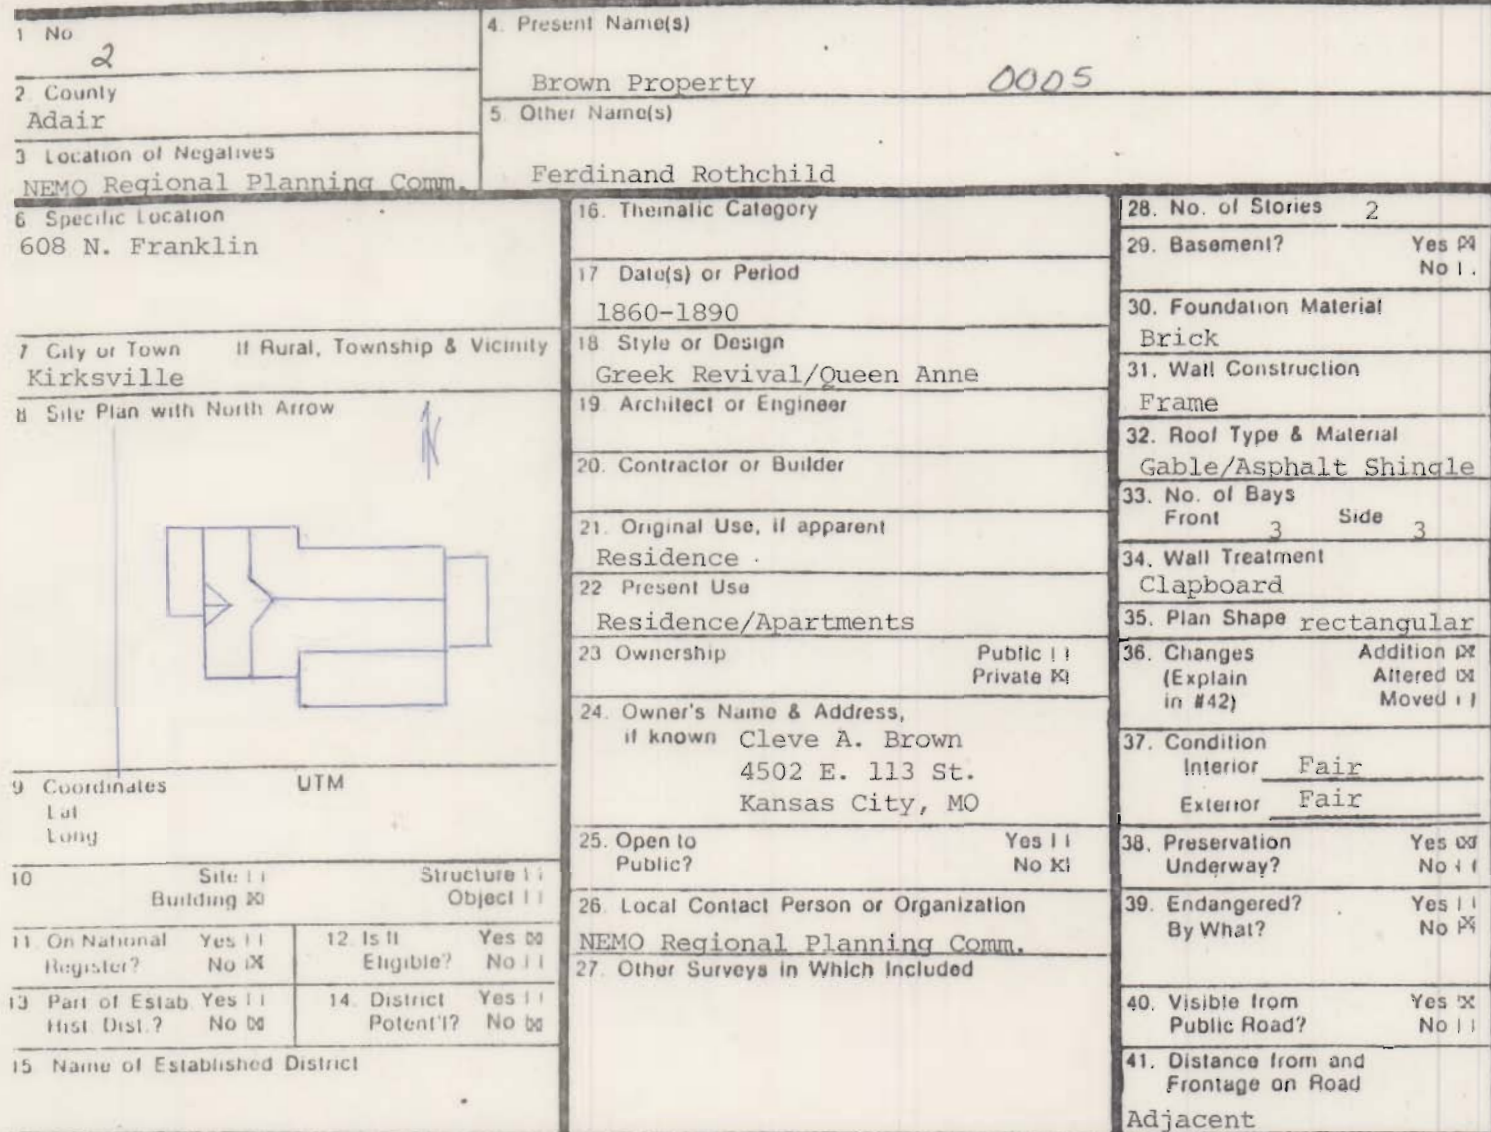 1 No
2
2 County
Adair
3 Location of Negatives
NEMO Regional Planning Comm.
4. Present Name(s)
Brown Property 0005
5 Other Name(s)
Ferdinand Rothchild
6 Specific Location
608 N. Franklin
7 City or Town If Rural, Township & Vicinity
Kirksville
8 Site Plan with North Arrow
N
9 Coordinates UTM
Lat
Long
10 Site [ ] Structure [ ]
Building [X] Object [ ]
11 On National Yes [ ]
Register? No [X]
12. Is It Yes [X]
Eligible? No [ ]
13 Part of Estab Yes [ ]
Hist Dist.? No [X]
14. District Yes [ ]
Potent'l? No [X]
15 Name of Established District
16. Thematic Category
17 Date(s) or Period
1860-1890
18 Style or Design
Greek Revival/Queen Anne
19 Architect or Engineer
20. Contractor or Builder
21. Original Use, if apparent
Residence
22 Present Use
Residence/Apartments
23 Ownership Public [ ]
Private [X]
24. Owner's Name & Address,
if known Cleve A. Brown
4502 E. 113 St.
Kansas City, MO
25. Open to Yes [ ]
Public? No [X]
26. Local Contact Person or Organization
NEMO Regional Planning Comm.
27. Other Surveys in Which Included
28. No. of Stories 2
29. Basement? Yes [X]
No [ ]
30. Foundation Material
Brick
31. Wall Construction
Frame
32. Roof Type & Material
Gable/Asphalt Shingle
33. No. of Bays
Front 3 Side 3
34. Wall Treatment
Clapboard
35. Plan Shape rectangular
36. Changes Addition [X]
(Explain Altered [X]
in #42) Moved [ ]
37. Condition
Interior Fair
Exterior Fair
38. Preservation Yes [X]
Underway? No [ ]
39. Endangered? Yes [ ]
By What? No [X]
40. Visible from Yes [X]
Public Road? No [ ]
41. Distance from and
Frontage on Road
Adjacent